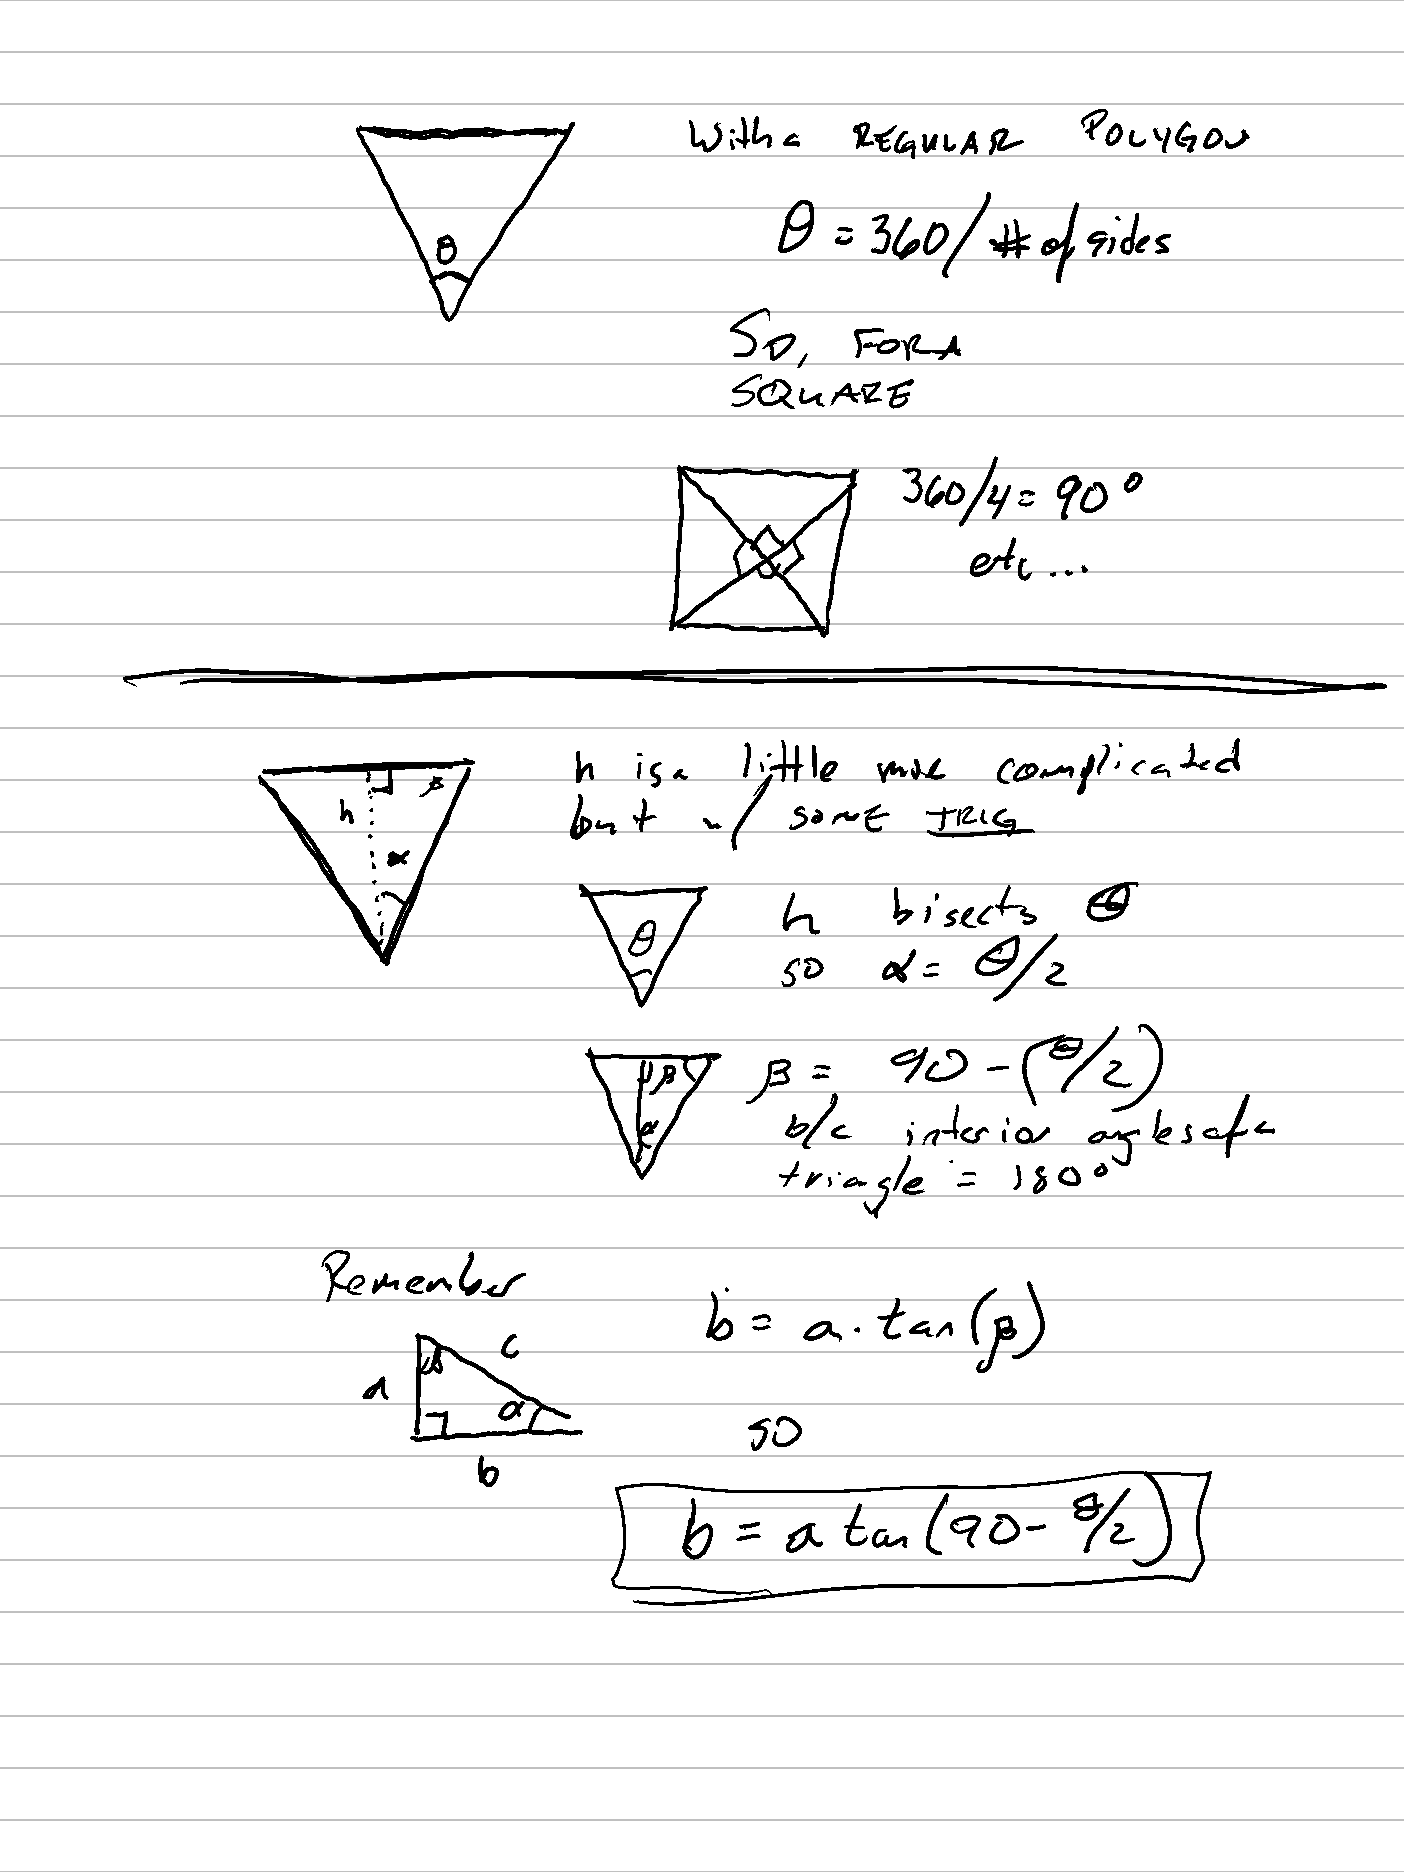 With a REGULAR POLYGON
θ
θ = 360/# of sides
SO, FOR A
SQUARE
360/4 = 90°
etc...
h is a little more complicated
but w/ SOME TRIG
h
β
α
θ
h bisects θ
so α = θ/2
β
α
β = 90 - (θ/2)
b/c interior angles of a
triangle = 180°
Remember
b = a · tan(β)
c
β
a
α
b
so
b = a tan(90 - θ/2)